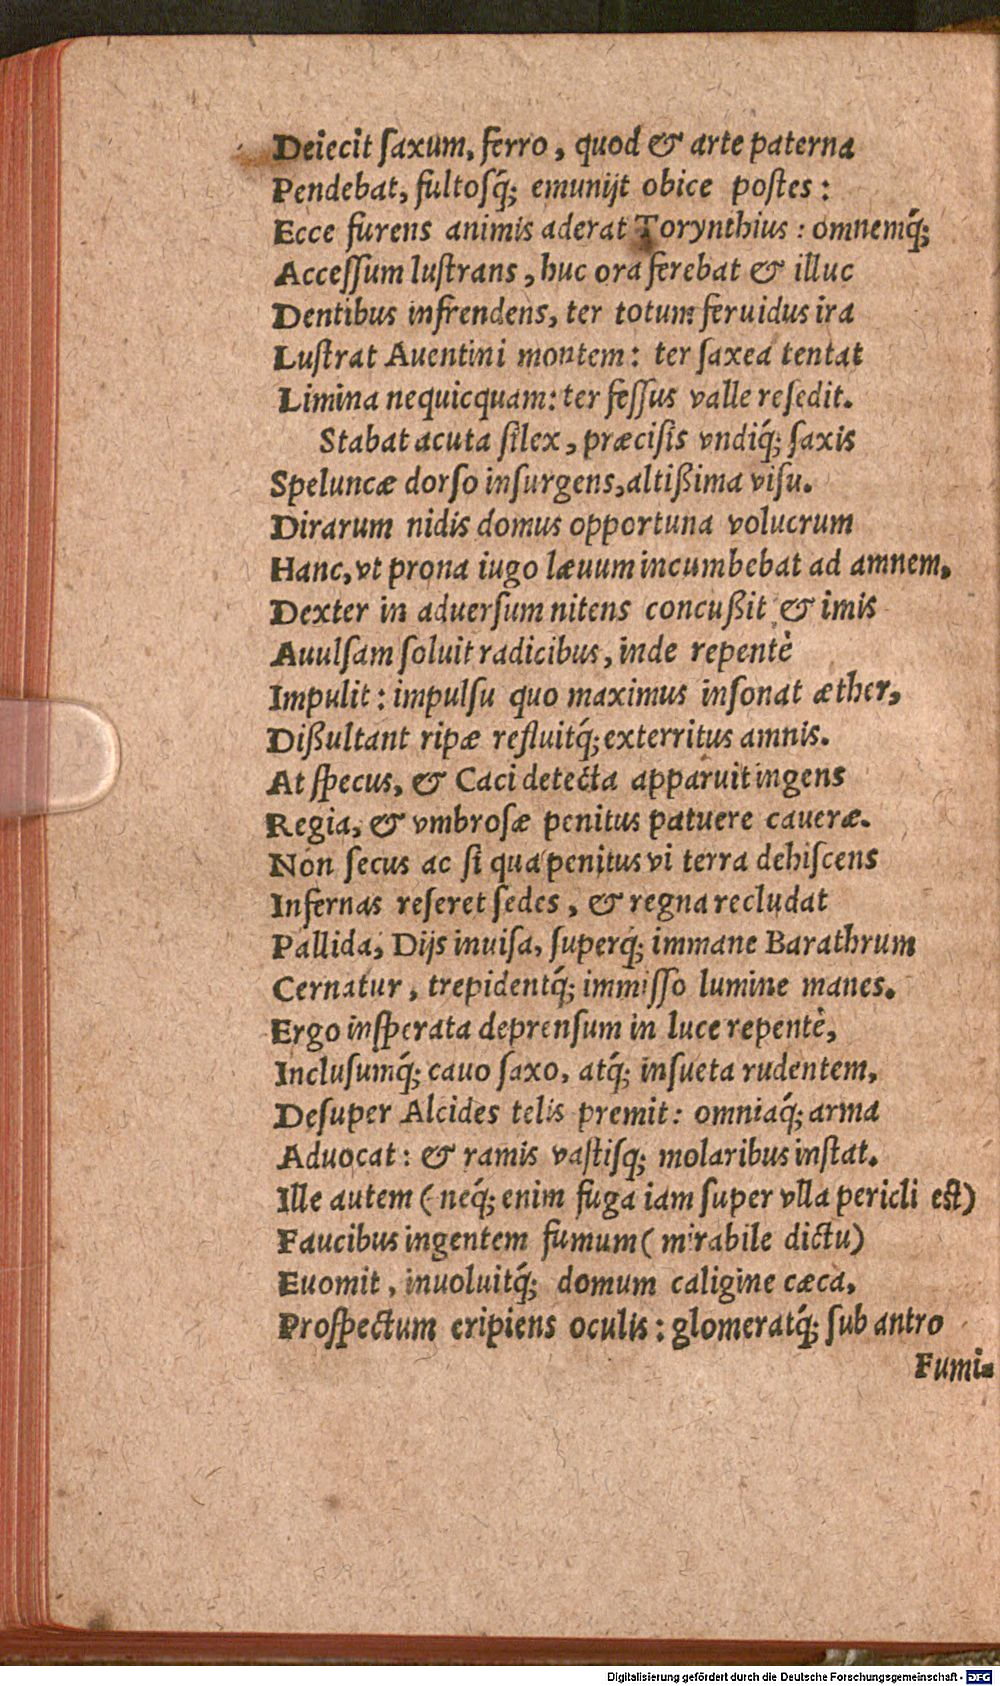 Deiecit ſaxum, ferro, quod & arte paterna
Pendebat, fultoſq́; emunijt obice poſtes:
Ecce furens animis aderat Torynthius: omnemq́;
Acceſſum luſtrans, huc ora ferebat & illuc
Dentibus infrendens, ter totum feruidus ira
Luſtrat Auentini montem: ter ſaxea tentat
Limina nequicquam: ter feſſus valle reſedit.
Stabat acuta ſilex, præciſis vndiq́; ſaxis
Speluncæ dorſo inſurgens, altißima viſu.
Dirarum nidis domus opportuna volucrum
Hanc, vt prona iugo læuum incumbebat ad amnem,
Dexter in aduerſum nitens concußit & imis
Auulſam ſoluit radicibus, inde repentè
Impulit: impulſu quo maximus inſonat æther,
Dißultant ripæ refluitq́; exterritus amnis.
At ſpecus, & Caci detecta apparuit ingens
Regia, & vmbroſæ penitus patuere caueræ.
Non ſecus ac ſi qua penitus vi terra dehiſcens
Infernas reſeret ſedes, & regna recludat
Pallida, Dijs inuiſa, ſuperq́; immane Barathrum
Cernatur, trepidentq́; immiſſo lumine manes.
Ergo inſperata deprenſum in luce repentè,
Incluſumq́; cauo ſaxo, atq́; inſueta rudentem,
Deſuper Alcides telis premit: omniaq́; arma
Aduocat: & ramis vaſtiſq́; molaribus inſtat.
Ille autem (neq́; enim fuga iam ſuper vlla pericli eſt)
Faucibus ingentem fumum (mirabile dictu)
Euomit, inuoluitq́; domum caligine cæca,
Proſpectum eripiens oculis: glomeratq́; ſub antro
Fumi-
Digitalisierung gefördert durch die Deutsche Forschungsgemeinschaft - DFG